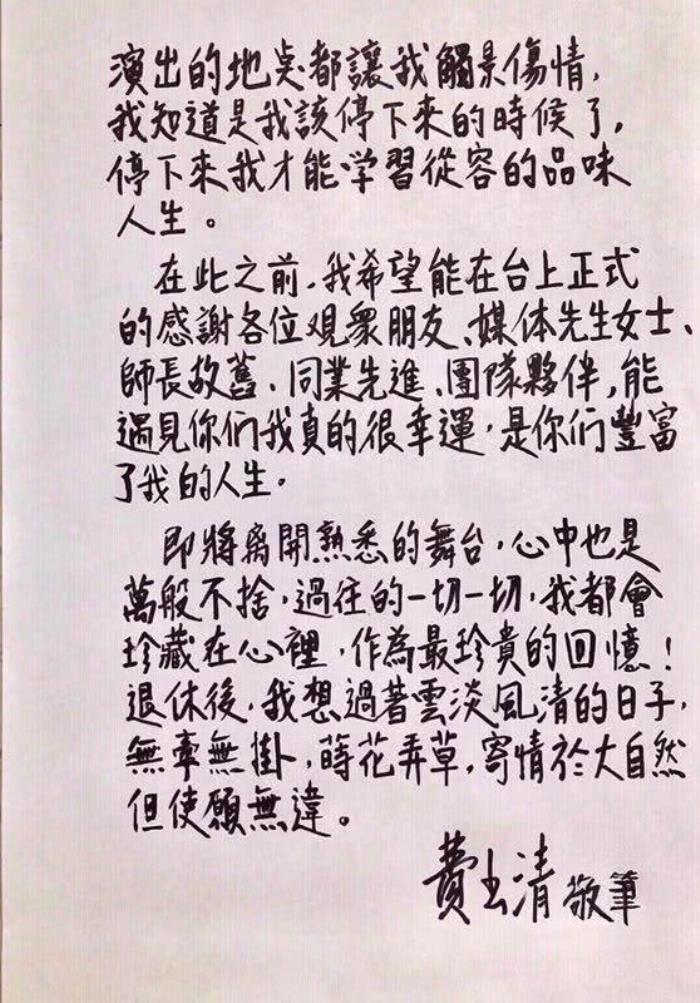 演出的地奌都讓我觸景傷情，
我知道是我該停下來的時候了，
停下來我才能学習從容的品味
人生。
在此之前，我希望能在台上正式
的感謝各位观眾朋友、媒体先生女士、
師長故舊、同業先進、團隊夥伴，能
遇見你们我真的很幸運，是你们豐富
了我的人生。
即將离開熟悉的舞台，心中也是
萬般不捨，過往的一切一切，我都會
珍藏在心裡，作為最珍貴的回憶！
退休後，我想過著雲淡風清的日子，
無牽無掛，蒔花弄草，寄情於大自然
但使願無違。
費玉清 敬筆